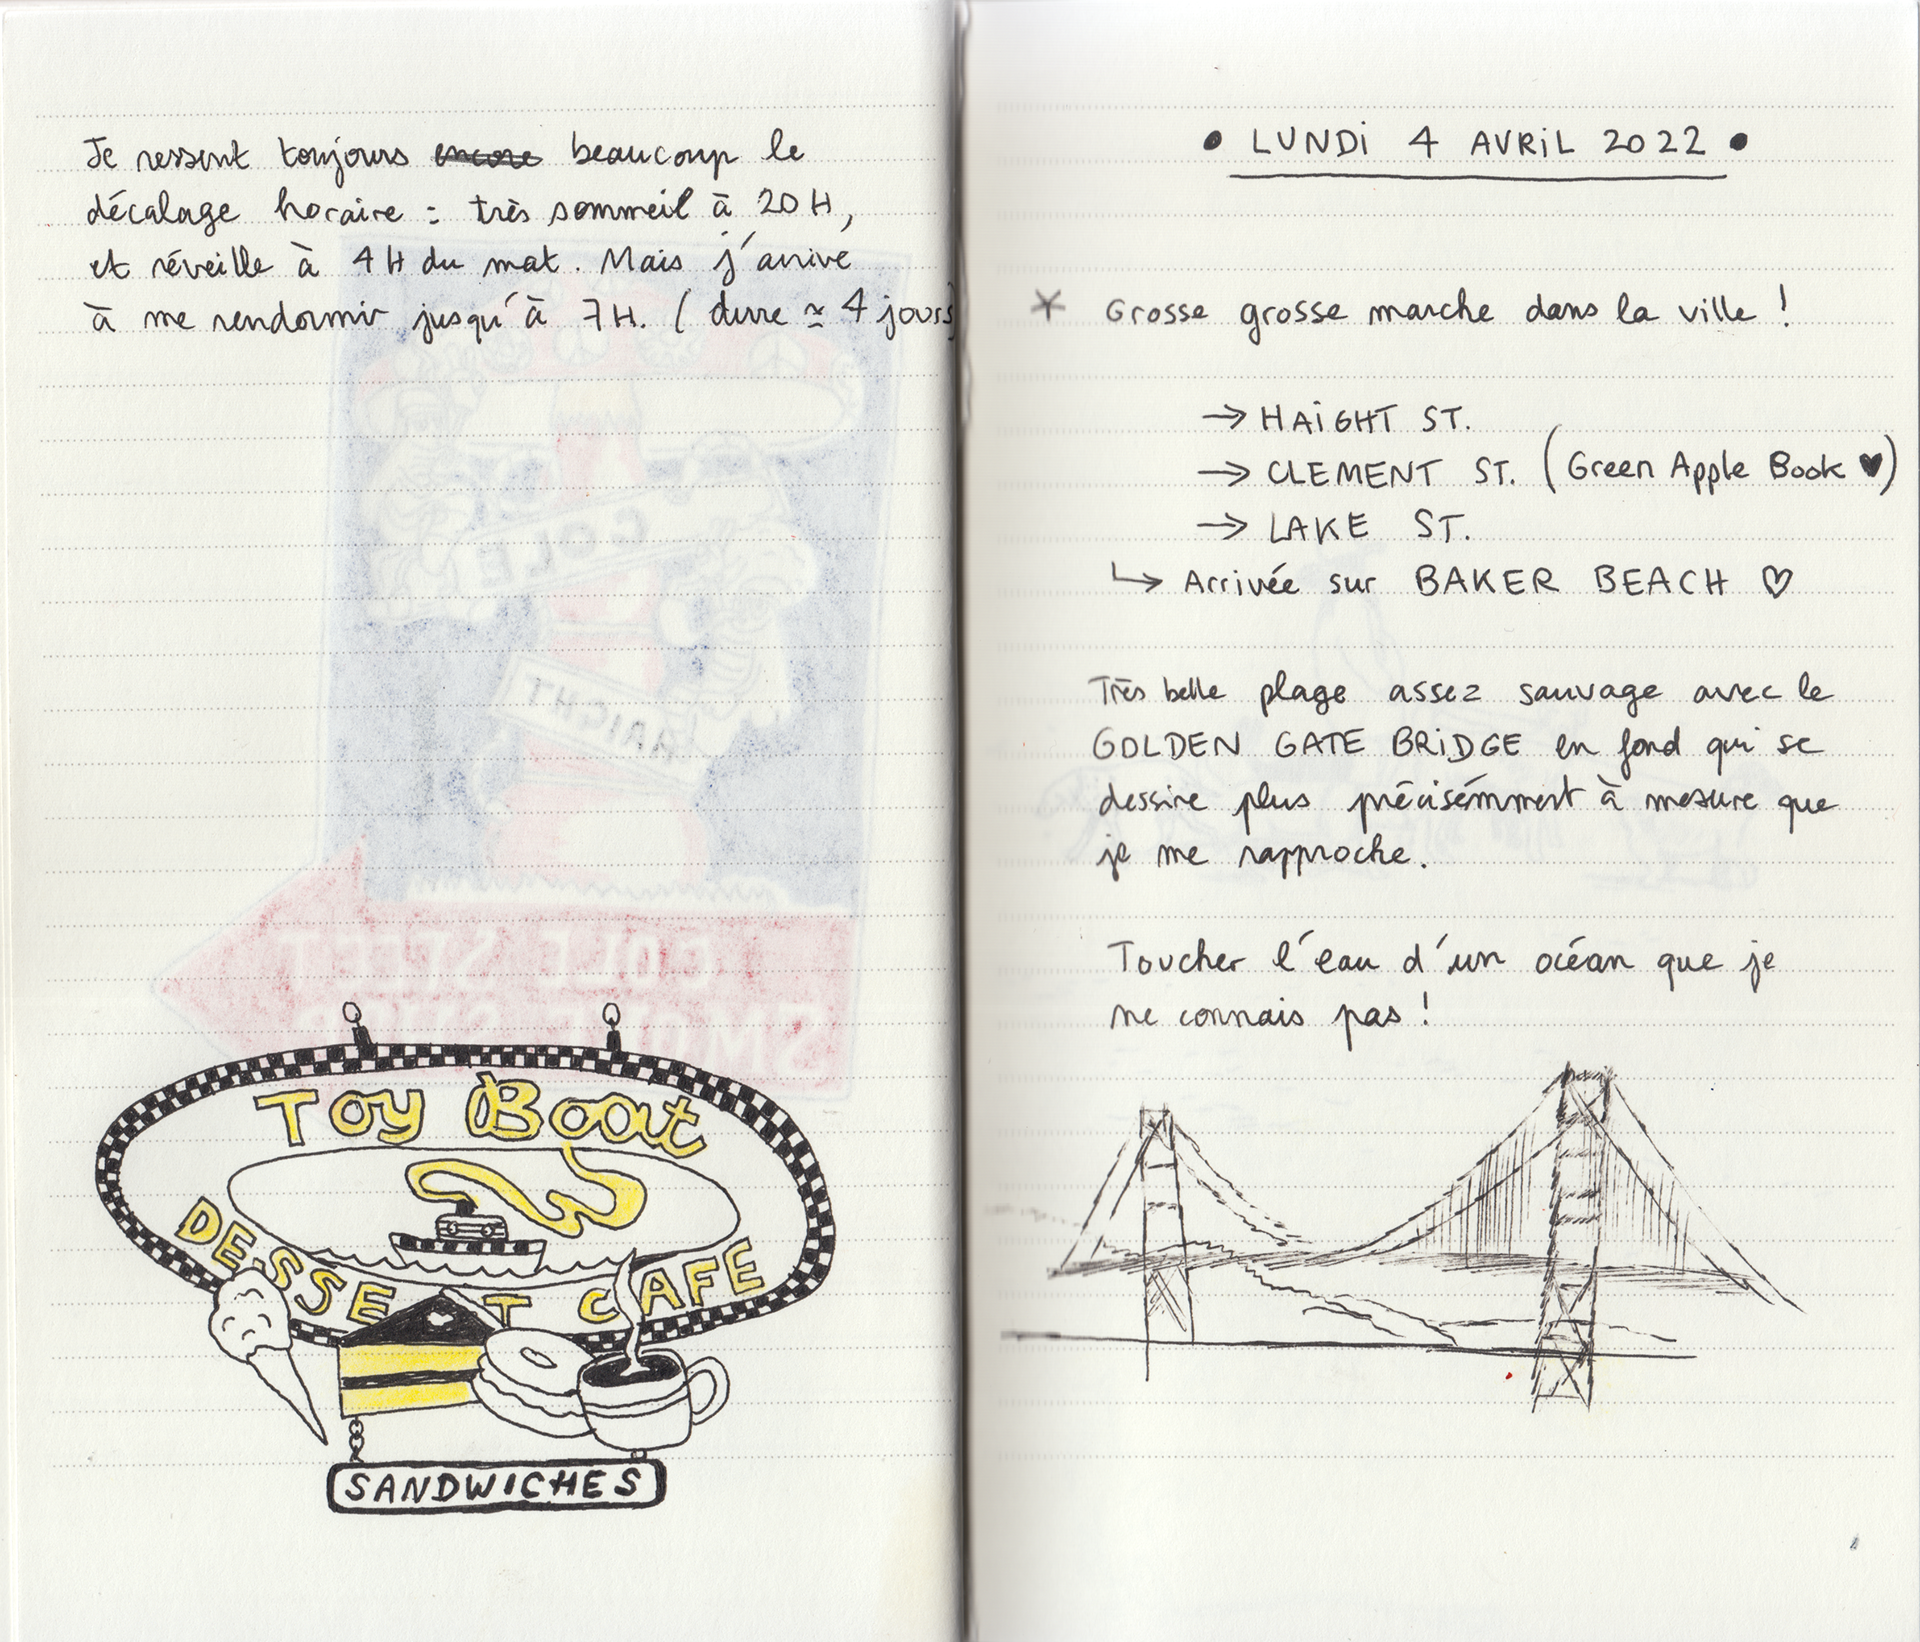 Je ressent toujours encore beaucoup le
décalage horaire : très sommeil à 20H,
et réveille à 4H du mat. Mais j'arrive
à me rendormir jusqu'à 7H. ( dure ≃ 4 jours)
TOY Boat
DESSE T CAFE
SANDWICHES
• LUNDi 4 AVRiL 2022 •
* Grosse grosse marche dans la ville !
→ HAiGHT ST.
→ CLEMENT ST. (Green Apple Book ♥)
→ LAKE ST.
↳ Arrivée sur BAKER BEACH ♡
Très belle plage assez sauvage avec le
GOLDEN GATE BRiDGE en fond qui se
dessine plus précisémment à mesure que
je me rapproche.
Toucher l'eau d'un océan que je
ne connais pas !